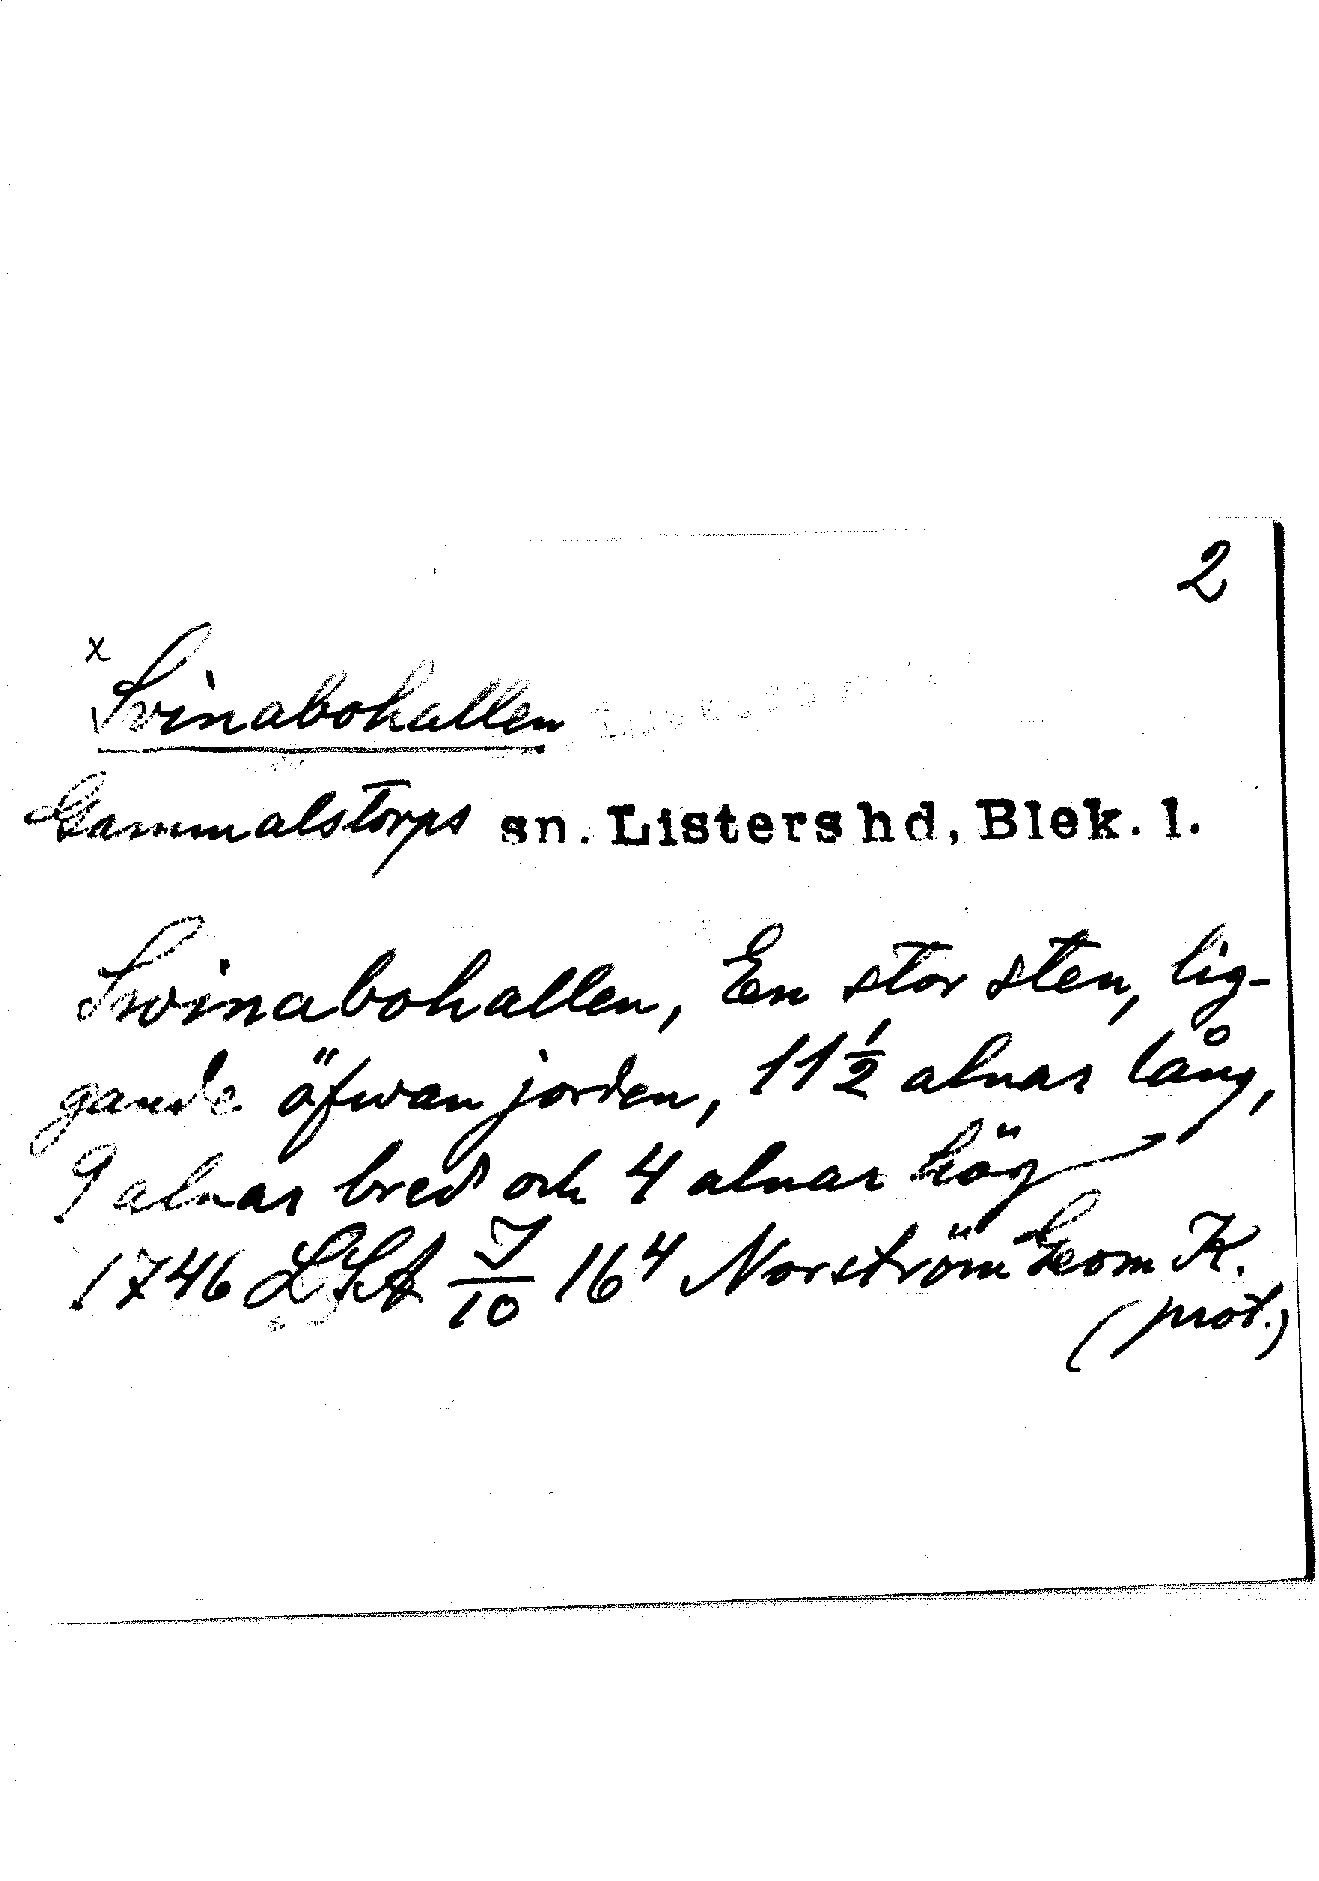 2
x
Svinabohallen
Gammalstorps sn. Listers hd, Blek. l.
Swinabohallen, En stor sten, lig-
gande öfwan jorden, 11 1/2 alnar lång,
9 alnar bred och 4 alnar hög
1746 LSA I/10 16⁴ Norström Geom K.
(prot.)